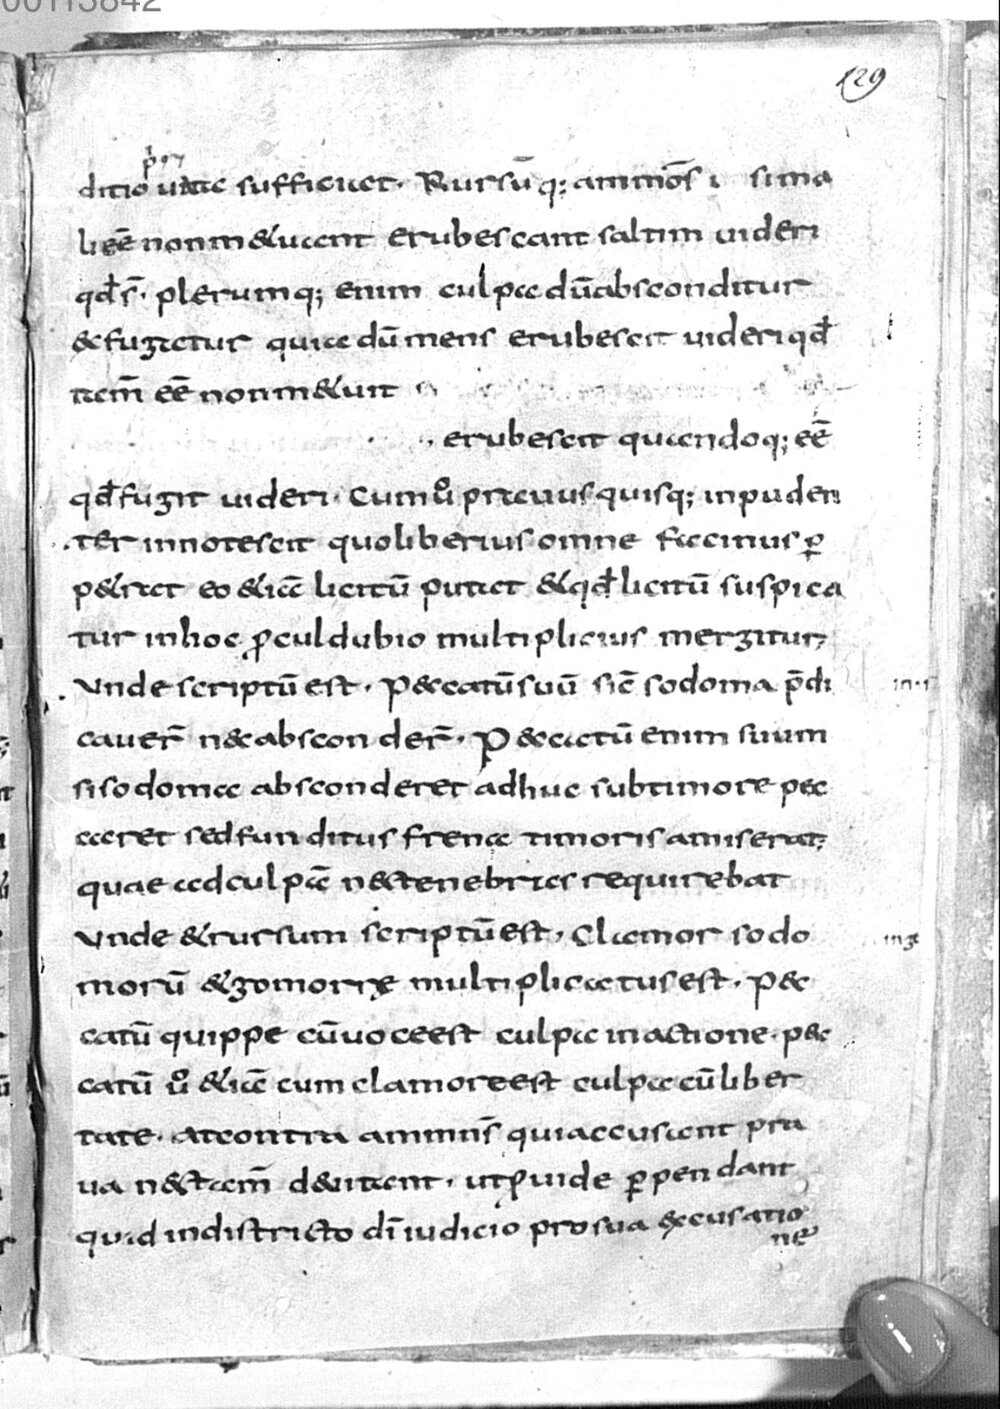 00113842
129
ditio uitae sufficeret. Rursūq; ammoñs si mа
li eē non metuunt erubescant saltim uideri
qđ s̄. plerumq; enim culpa dū absconditur
& fugatur quia dū mens erubescit uideri qđ
tam̄ eē non metuit
erubescit quandoq; eē
qđ fugit uideri. Cum u͛o prauus quisq; inpuden
ter innotescit quo liberius omne facinus ꝑ
petrat eo &iā licitū putat &qđ licitū suspica
tur in hoc ꝓculdubio multiplicius mergitur;
Unde scriptū est. P&catū suū sic̄ sodoma p̄di
cauer̄ nec absconder̄. P&catū enim suum
si sodoma absconderet adhuc sub timore pec
caret sed funditus frena timoris amiserat;
quae ad culpā nec tenebras requirebat
Unde & rursum scriptū est. Clamor sodo
morū & gomorrę multiplicatus est. Pec
catū quippe cū uoce est culpa in actione. pec
catū u͛o &iā cum clamore est culpa cū liber
tate. at contra ammn̄s qui accusant pra
ua nec tam̄ deuitant. ut ꝓuide ꝑpendant
quid in districto dī iudicio pro sua excusatio
ne